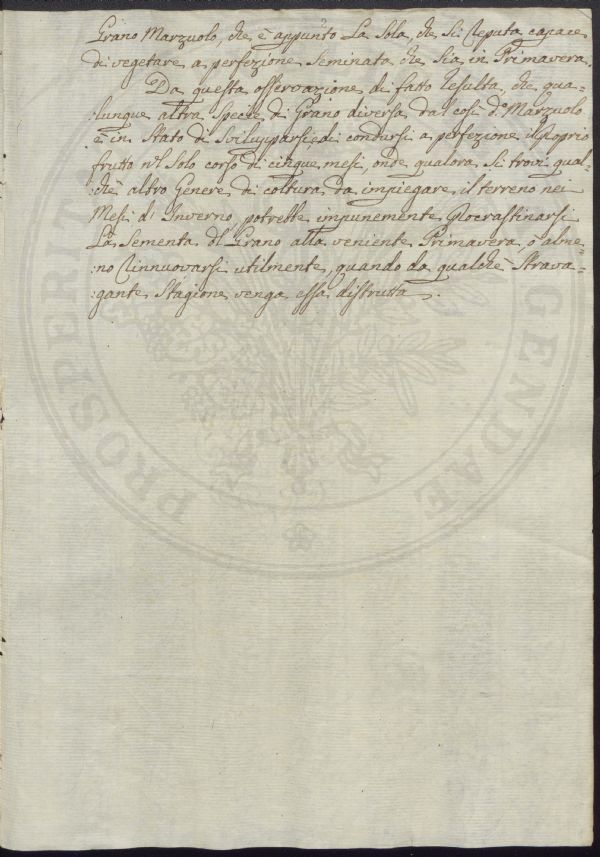 Grano Marzuolo, che è appunto La Sola, che Si Reputa capace
di vegetare a perfezione Seminata che Sia in Primavera.
Da questa osservazione di fatto Resulta, che qua=
:lunque altra Specie di Grano diversa dal così d.º Marzuolo
è in Stato di Svilupparsi, e di condursi a perfezione il proprio
frutto nel Solo corso di cinque mesi, onde qualora Si trovi qual=
:chè altro Genere di coltura da impiegare il terreno nei
Mesi d' Inverno, potrebbe impunemente Procrastinarsi
La Sementa del Grano alla veniente Primavera, o alme=
:no Rinnuovarsi utilmente, quando da qualchè Strava=
:gante Stagione venga essa distrutta.
PROSPERITATI AUGENDAE